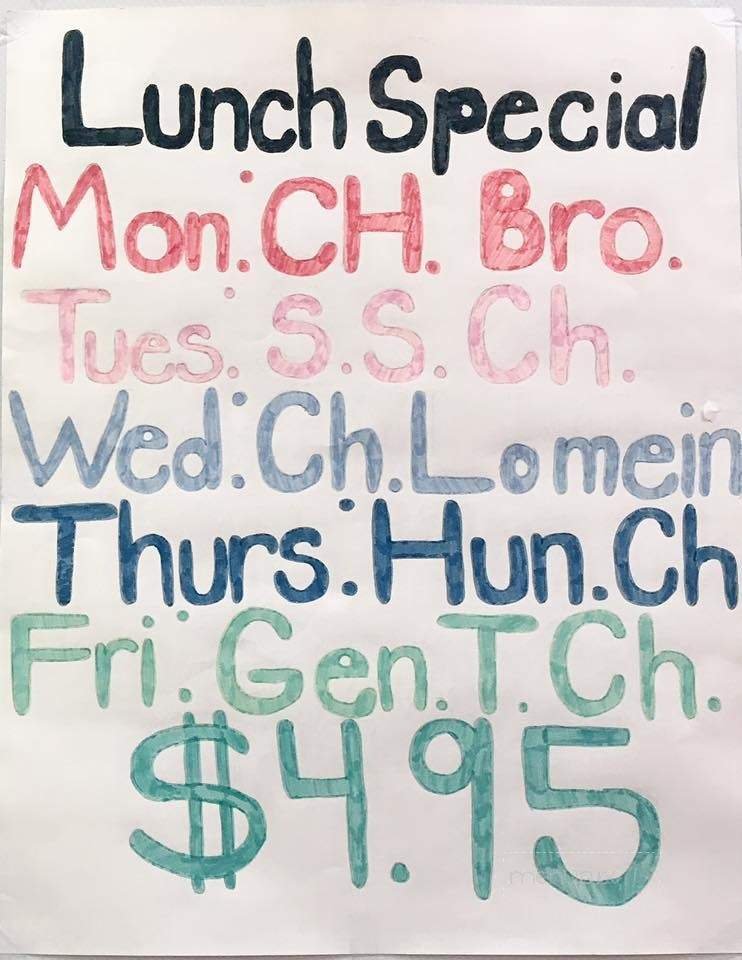 Lunch Special
Mon: CH. Bro.
Tues: S.S. Ch.
Wed: Ch. Lomein
Thurs: Hun. Ch
Fri: Gen. T. Ch.
$4.95